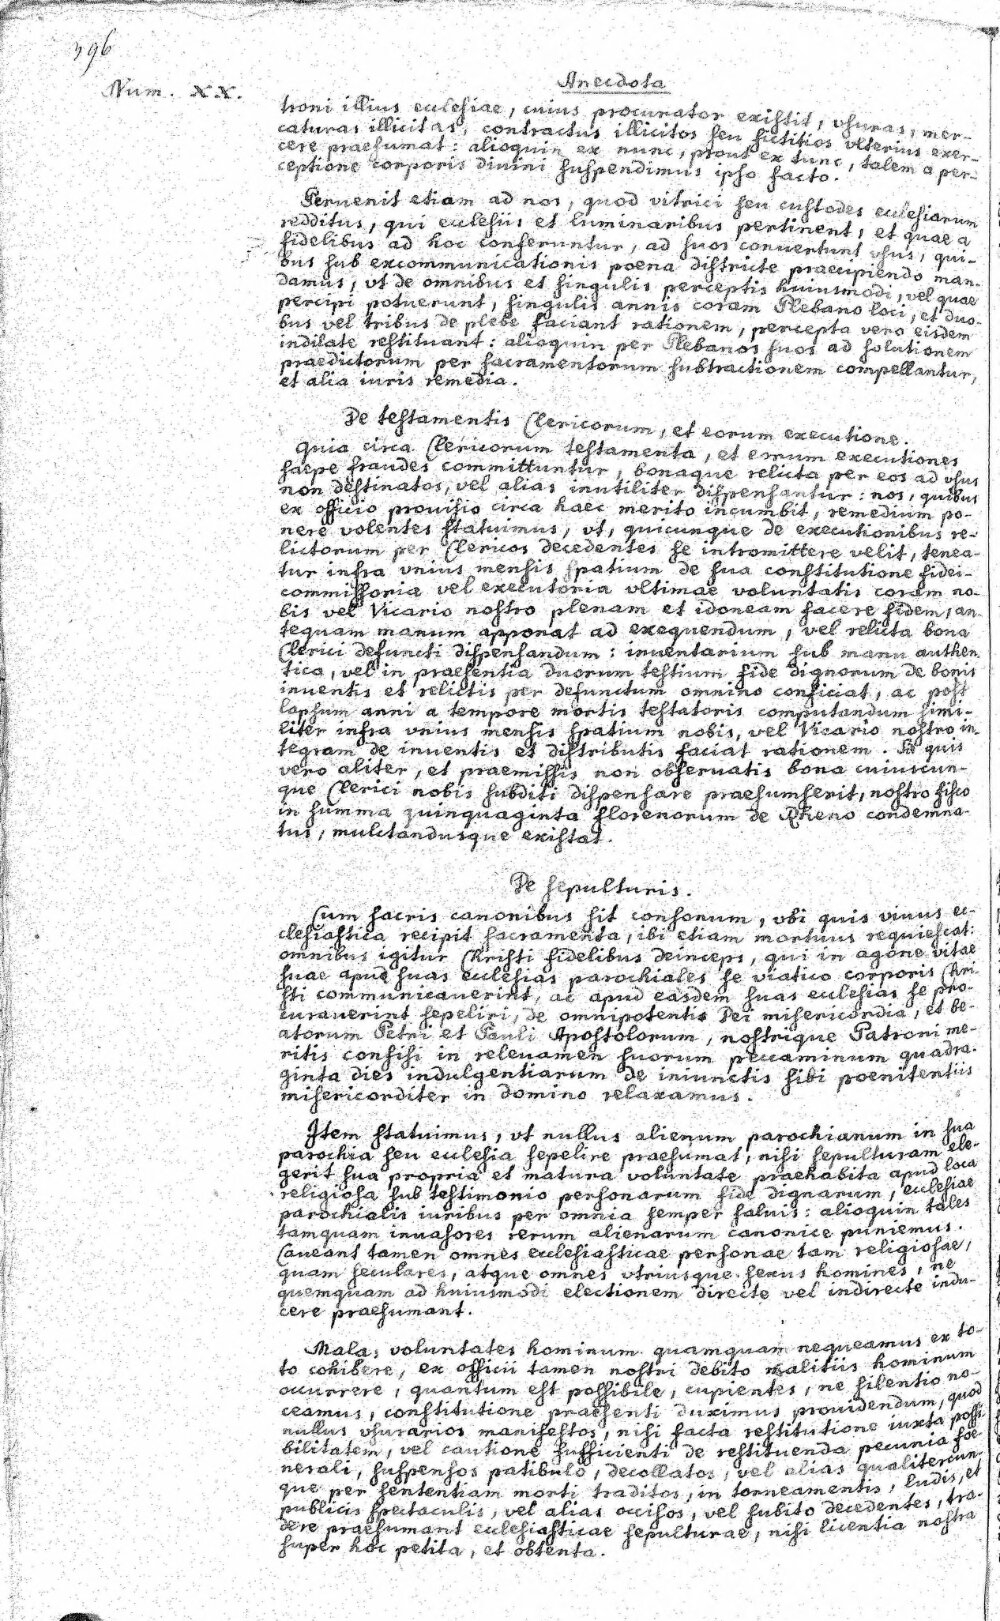 396
Num. XX.
Anecdota
troni illius ecclesiae, cuius procurator existit, vsuras, mer-
caturas illicitas, contractus illicitos seu fictitios vlterius exer-
cere praesumat: alioquin ex nunc, prout ex tunc, talem a per-
ceptione corporis divini suspendimus ipso facto.
Peruenit etiam ad nos, quod vitrici seu custodes ecclesiarum
redditus, qui ecclesiis et luminaribus pertinent, et quae a
fidelibus ad hoc conferuntur, ad suos conuertunt vsus, qui-
bus sub excommunicationis poena districte praecipiendo man-
damus, vt de omnibus et singulis perceptis huiusmodi, vel quae
percipi potuerunt, singulis annis coram Plebano loci, et duo-
bus vel tribus de plebe faciant rationem, percepta vero eisdem
indilate restituant: alioquin per Plebanos suos ad solutionem
praedictorum per sacramentorum subtractionem compellantur,
et alia iuris remedia.
De testamentis Clericorum, et eorum executione.
Quia circa Clericorum testamenta, et eorum executiones
saepe fraudes committuntur, bonaque relicta per eos ad vsus
non destinatos, vel alias inutiliter dispensantur: nos, quibus
ex officio prouisio circa haec merito incumbit, remedium po-
nere volentes statuimus, vt, quicunque de executionibus re-
lictorum per Clericos decedentes se intromittere velit, tenea-
tur infra vnius mensis spatium de sua constitutione fidei-
commissoria vel executoria vltimae voluntatis coram no-
bis vel Vicario nostro plenam et idoneam facere fidem, an-
tequam manum apponat ad exequendum, vel relicta bona
Clerici defuncti dispensandum: inuentarium sub manu authen-
tica, vel in praesentia duorum testium fide dignorum de bonis
inuentis et relictis per defunctum omnino conficiat, ac post
lapsum anni a tempore mortis testatoris computandum simi-
liter infra vnius mensis spatium nobis, vel Vicario nostro in-
tegram de inuentis et distributis faciat rationem. Si quis
vero aliter, et praemissis non obseruatis bona cuiuscun-
que Clerici nobis subditi dispensare praesumserit, nostro fisco
in summa quinquaginta florenorum de Rheno condemna-
tus, mulctandusque existat.
De sepulturis.
Cum sacris canonibus sit consonum, vbi quis viuus ec-
clesiastica recipit sacramenta, ibi etiam mortuus requiescat:
omnibus igitur Christi fidelibus deinceps, qui in agone vitae
suae apud suas ecclesias parochiales se viatico corporis Chri-
sti communicauerint, ac apud easdem suas ecclesias se pro-
curauerint sepeliri, de omnipotentis Dei misericordia, et be-
atorum Petri et Pauli Apostolorum, nostrique Patroni me-
ritis confisi in releuamen suorum peccaminum quadra-
ginta dies indulgentiarum de iniunctis sibi poenitentiis
misericorditer in domino relaxamus.
Item statuimus, vt nullus alienum parochianum in sua
parochia seu ecclesia sepelire praesumat, nisi sepulturam ele-
gerit sua propria et matura voluntate praehabita apud loca
religiosa sub testimonio personarum fide dignarum, ecclesiae
parochialis iuribus per omnia semper saluis: alioquin tales
tamquam inuasores rerum alienarum canonice puniemus.
Caueant tamen omnes ecclesiasticae personae tam religiosae,
quam seculares, atque omnes vtriusque sexus homines, ne
quemquam ad huiusmodi electionem directe vel indirecte indu-
cere praesumant.
Malas voluntates hominum quamquam nequeamus ex to-
to cohibere, ex officii tamen nostri debito malitiis hominum
occurrere, quantum est possibile, cupientes, ne silentio no-
ceamus, constitutione praesenti duximus prouidendum, quod
nullus vsurarios manifestos, nisi facta restitutione iuxta possi-
bilitatem, vel cautione sufficienti de restituenda pecunia foe-
nerali, suspensos patibulo, decollatos, vel alias qualitercun-
que per sententiam morti traditos, in torneamentis, ludis, et
publicis spectaculis, vel alias occisos, vel subito decedentes, tra-
dere praesumant ecclesiasticae sepulturae, nisi licentia nostra
super hoc petita, et obtenta.